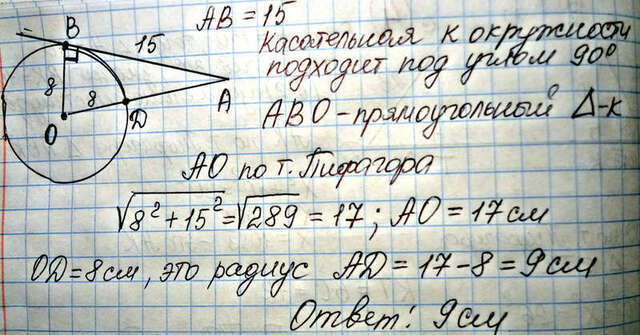 AB = 15
B
15
Касательная к окружности
подходит под углом 90°
8
8
A
D
O
ABO - прямоугольный Δ-к
AO по т. Пифагора
√8² + 15² = √289 = 17 ; AO = 17 см
OD = 8 см, это радиус AD = 17 - 8 = 9 см
Ответ: 9 см